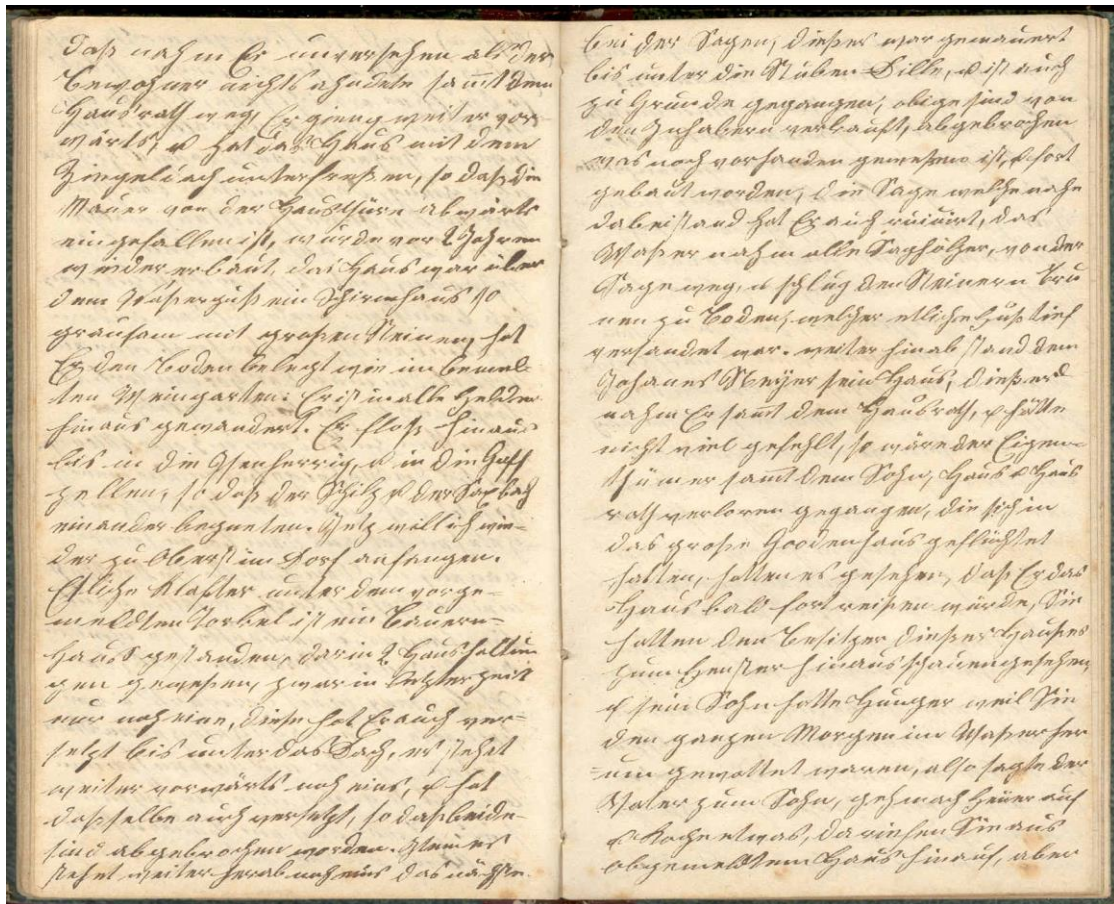 Daß nahm Er unversehen als der
Bewohner nichts ahndete samt dem
Hausrath weg, Er gieng weiter vor-
wärts, u hat das Haus mit dem
Ziegeldach unterfreßen, so daß die
Mauer von der Hausthüre abwärts
eingefallen ist, wurde vor 2 Jahren
wieder erbaut, das Haus war über
dem Waßerguß ein Schirmhaus so
grausam mit großen Steinen, hat
Er den Boden belegt wie im bemel-
ten Weingarten: Er ist in alle Felder
hinaus gewandert. Er floß hinaus
bis in die Isenherrig, u in die
zellen, so daß der Schilz u der Saxbach
einander begneten. Jetz will ich wie-
der zu Oberst im Dorf anfangen.
Etliche Klafter unter dem vorge-
meldten Torkel ist ein Bauern-
Hauß gestanden, darin 2 Haushaltun
gen gewesen, zwar in letzter zeit
nur noch eine, diese hat Er auch ver-
setzt bis unter das Dach, es stehet
weiter vorwärts noch eins, u hat
dasselbe auch versetzt, so daß beide
sind abgebrochen worden. Item es
stehet weiter herab noch eins das nächste
bei der Sagen, dießes war gemauert
bis unter die Stuben Dille, u ist auch
zu Grunde gegangen, obige sind von
den Inhabern verkauft, abgebrochen
was noch vorhanden gewesen ist, u fort
gebaut worden, die Sage welche nahe
dabei stand hat Er auch ruinirt, das
Waßer nahm alle Saghölzer, von der
Sage weg, u schlug den Steinern Bru
nen zu Boden, welcher etliche Fuß tief
versandet war. weiter hinab stand dem
Johanes Meyer sein Haus, dießes
nahm Er samt dem Hausrath, u hätte
nicht viel gefehlt, so wäre der Eigen-
thümer samt dem Sohn, Haus u Haus
rath verloren gegangen, die sich in
das große Haus geflüchtet
hatten, hatten es gesehen, daß Er das
Haus bald fort reißen würde, Sie
hatten den Besitzer dießes Haußes
zum Fenster hinaus schauen gesehen,
u sein Sohn hatte Hunger weil Sie
den ganzen Morgen im Waßer her
=um gewattet waren, also sagte der
Vater zum Sohn, geh mach Feüer auf
u Koche etwas, da riefen Sie aus
obgemeldtem Haus hinauf, aber